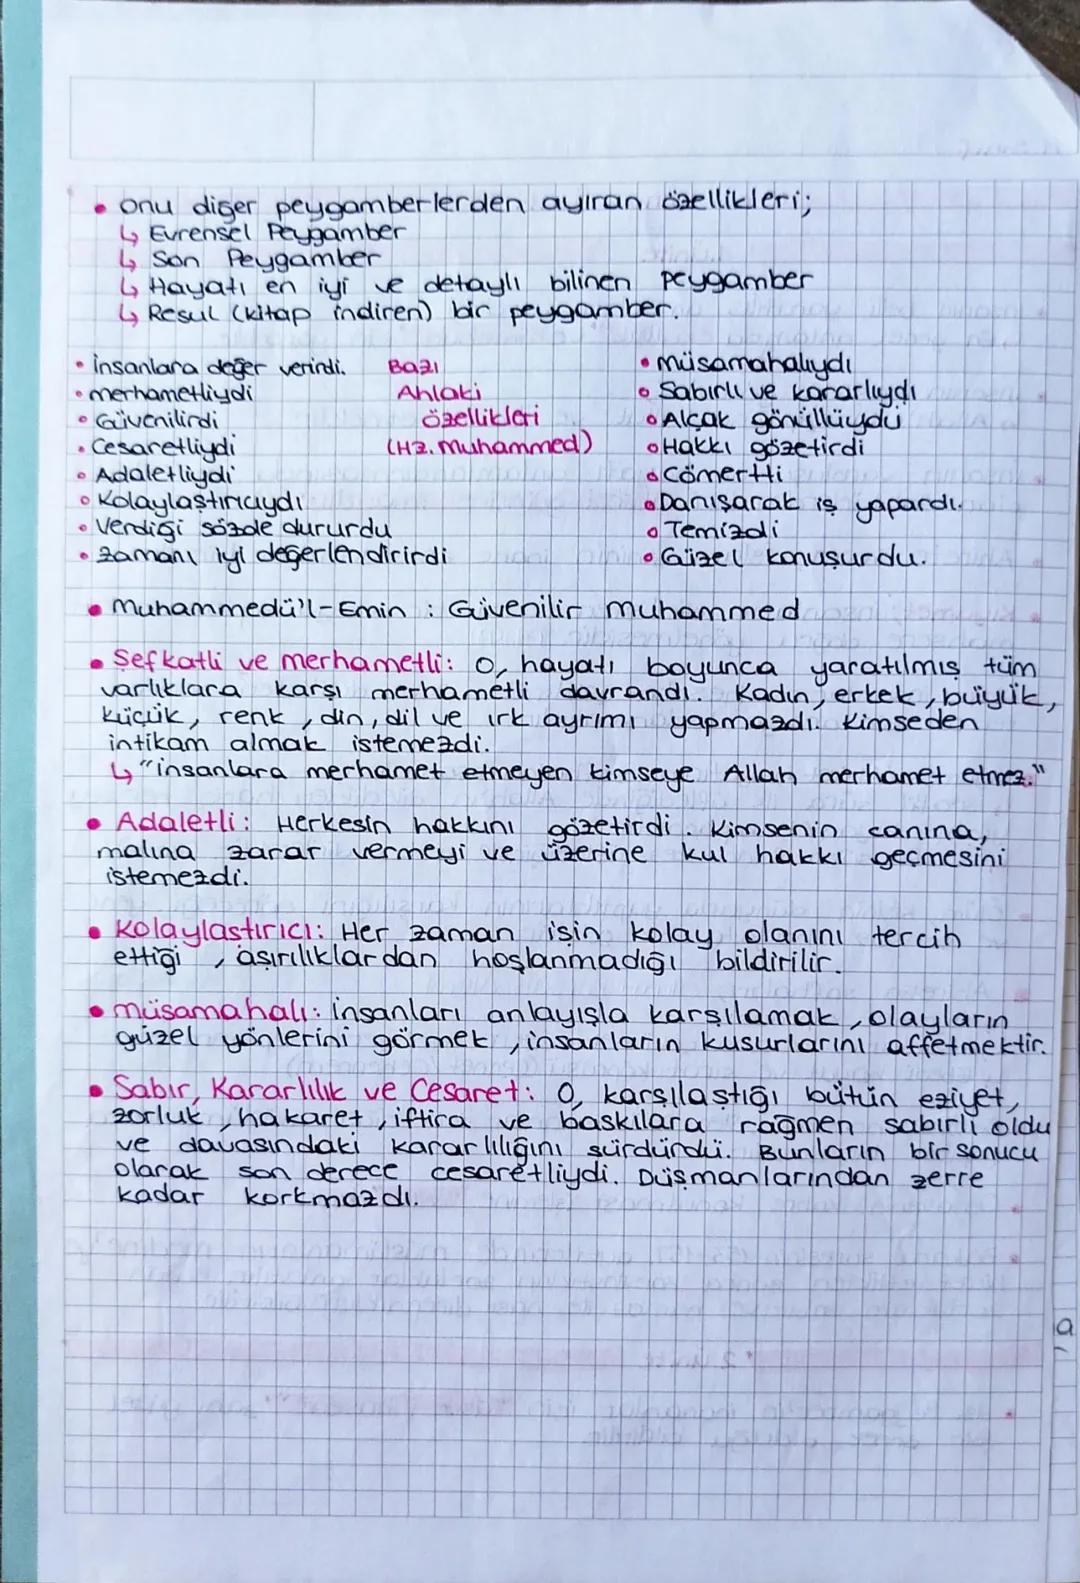 • onu diğer peygamberlerden ayıran özellikleri;
↳ Evrensel Peygamber
↳ Son Peygamber
↳ Hayatı en iyi ve detaylı bilinen peygamber
↳ Resul (kitap indiren) bir peygamber.
• insanlara değer verirdi.
• merhametliydi
• Güvenilirdi
• Cesaretliydi
• Adaletliydi
• Kolaylaştırıcıydı
• Verdiği sözde dururdu
• zamanı iyi değerlendirirdi
Bazı
Ahlaki
özellikleri
(Hz. Muhammed)
• müsamahalıydı
• Sabırlı ve kararlıydı
• Alçak gönüllüydü
• Hakkı gözetirdi
• Cömertti
• Danışarak iş yapardı.
• Temizdi
• Güzel konuşurdu.
• Muhammedü'l-Emin : Güvenilir muhammed
• Şefkatli ve merhametli: O, hayatı boyunca yaratılmış tüm
varlıklara karşı merhametli davrandı. Kadın, erkek, büyük,
küçük, renk, din, dil ve ırk ayrımı yapmazdı. Kimseden
intikam almak istemezdi.
↳ "insanlara merhamet etmeyen kimseye Allah merhamet etmez."
• Adaletli: Herkesin hakkını gözetirdi. Kimsenin canına,
malına zarar vermeyi ve üzerine kul hakkı geçmesini
istemezdi.
• Kolaylastırıcı: Her zaman işin kolay olanını tercih
ettiği, aşırılıklardan hoşlanmadığı bildirilir.
• müsamahalı: İnsanları anlayışla karşılamak, olayların
güzel yönlerini görmek, insanların kusurlarını affetmektir.
• Sabır, Kararlılık ve Cesaret: O, karşılaştığı bütün eziyet,
zorluk, hakaret, iftira ve baskılara rağmen sabırlı oldu
ve davasındaki kararlılığını sürdürdü. Bunların bir sonucu
olarak son derece cesaretliydi. Düşmanlarından zerre
kadar korkmazdı.